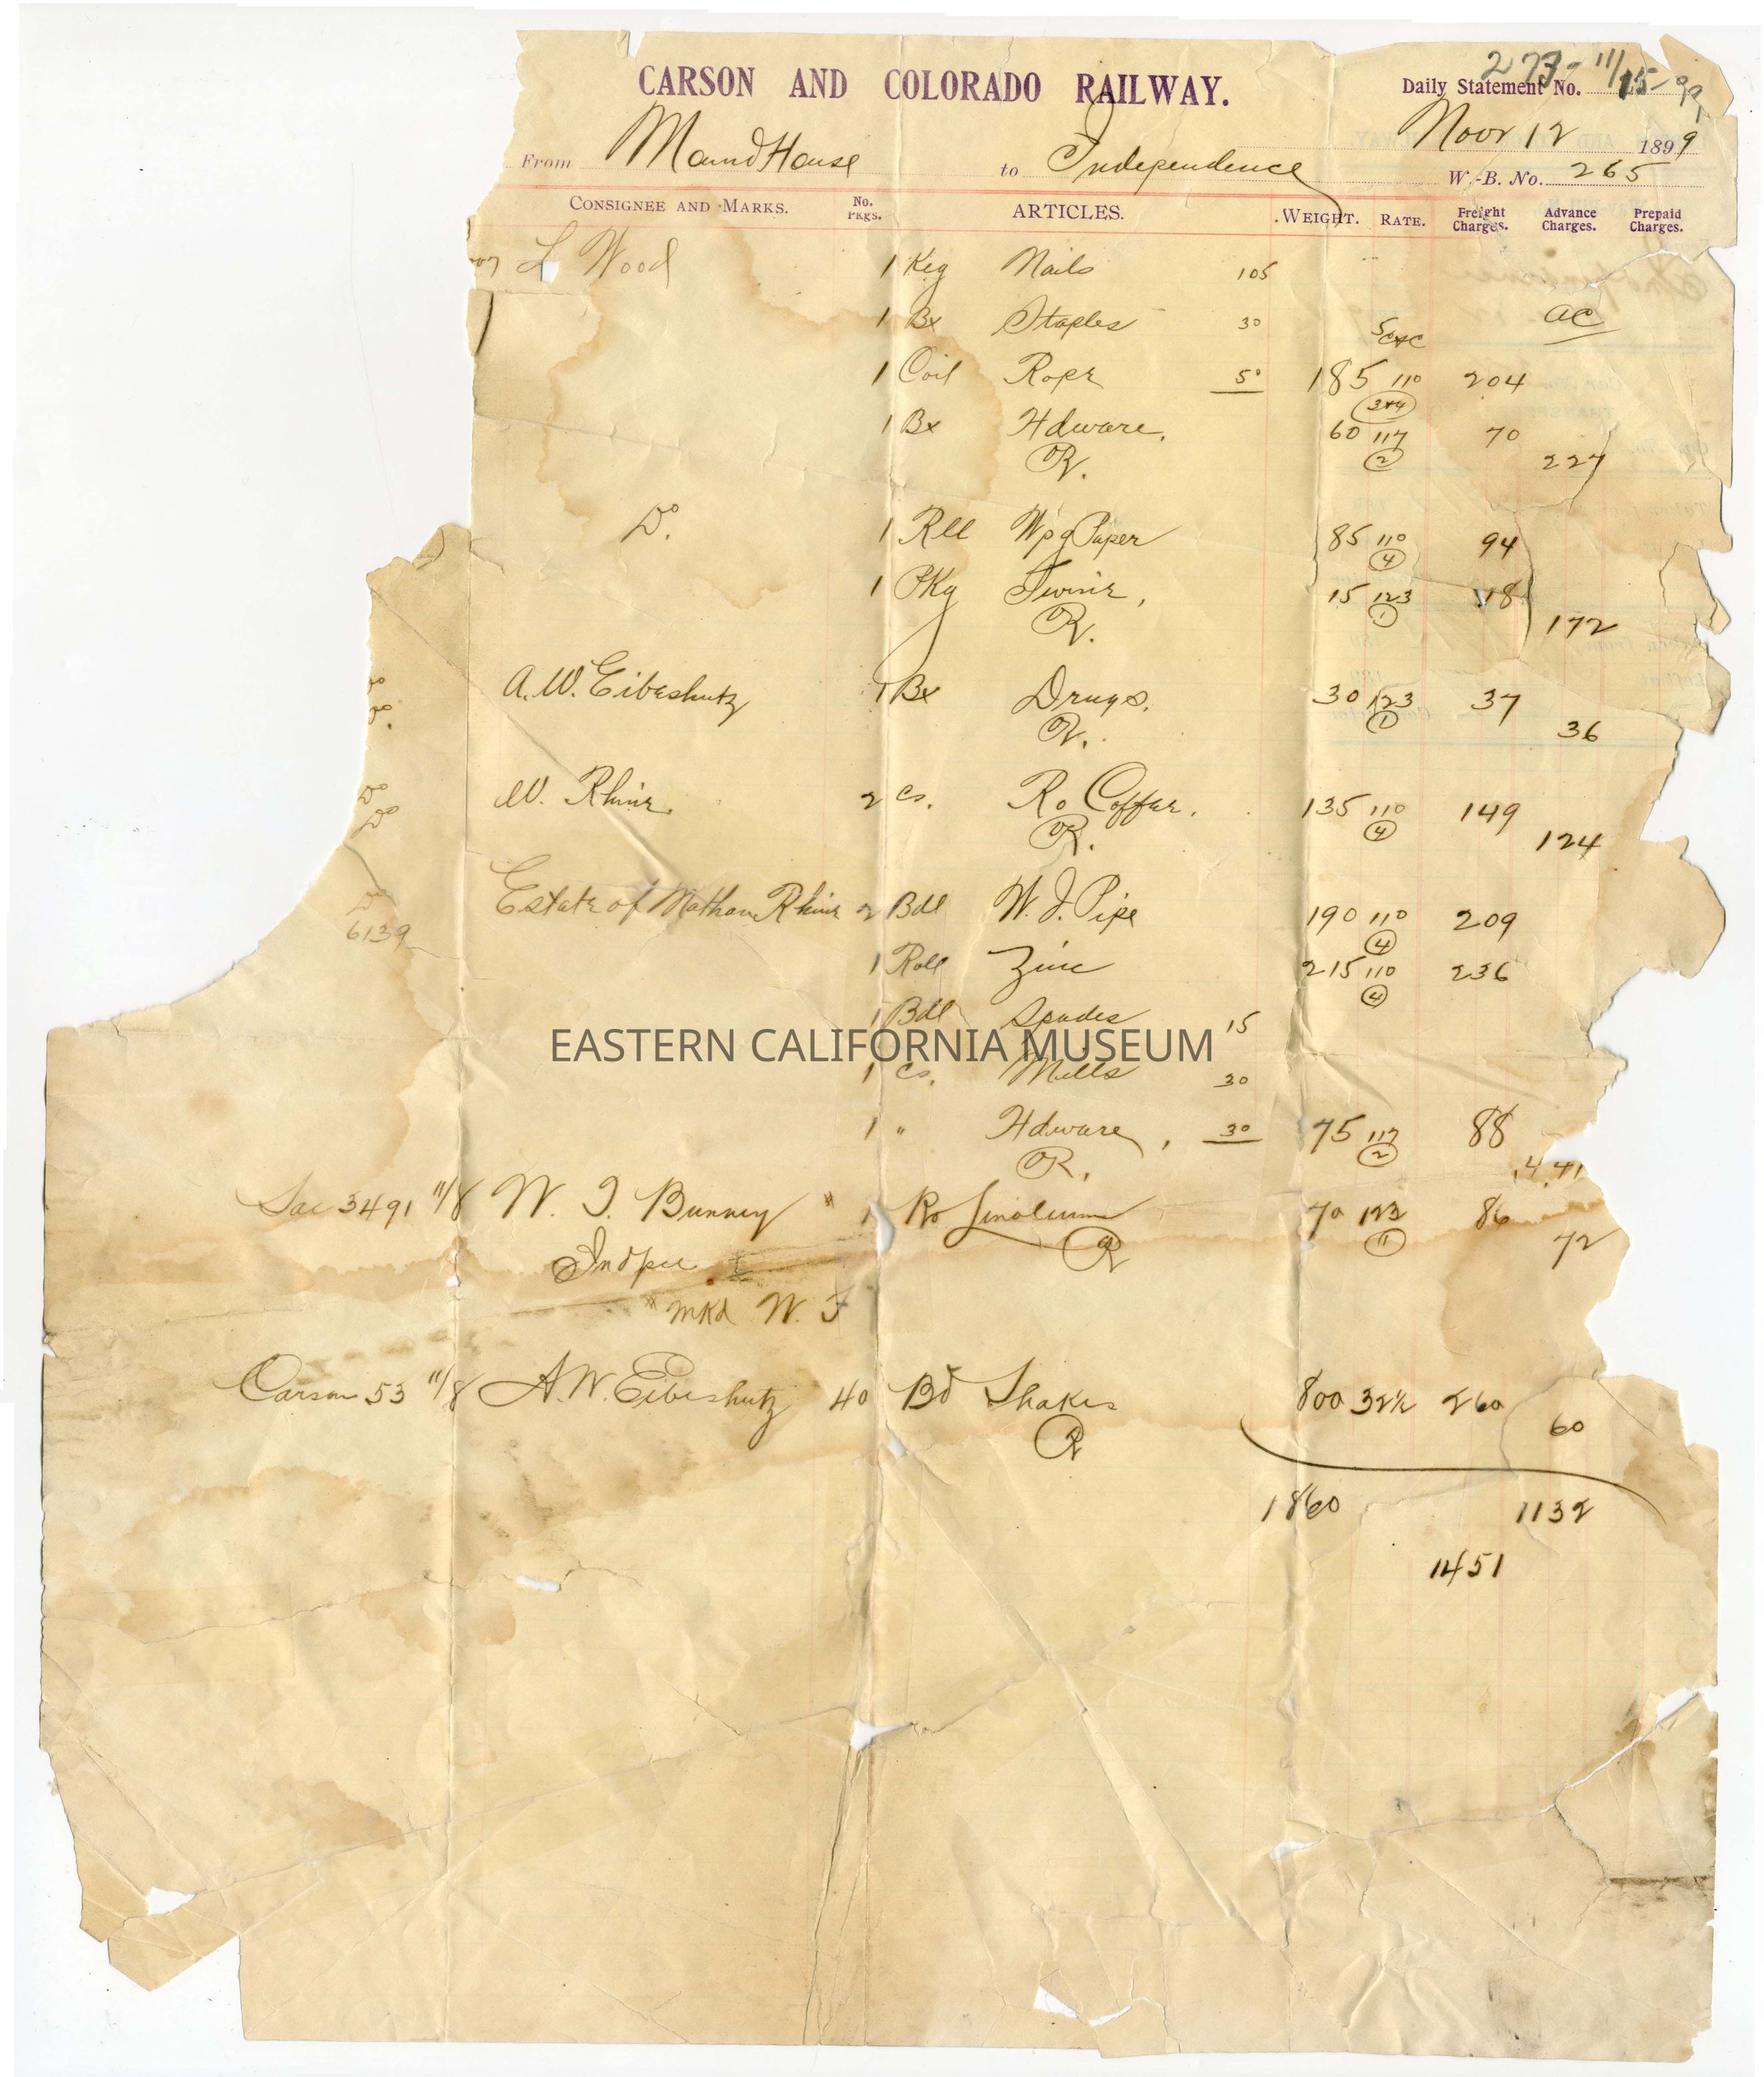 273 - 11/15 - 99
CARSON AND COLORADO RAILWAY. Daily Statement No.
Noor 12 1899
From Mound House to Independence
W.-B. No. 265
CONSIGNEE AND MARKS. No. PKGS. ARTICLES. WEIGHT. RATE. Freight Charges. Advance Charges. Prepaid Charges.
L Wood 1 Keg Nails 105
1 Bx Staples 30 ac
5 C&C
1 Coil Rope 50 185 110 204
3+4
1 Bx Hdware, 60 117 70
R. 2 227
Do. 1 Rll Wpg Paper 85 110 94
4
1 PKg Twine, 15 123 18
R. 1 172
Do
Do.
A. W. Eibeshutz 1 Bx Drugs. 30 123 37
R. 1 36
Do
Do
W. Rhine. 2 Cs. Ro Coffee. 135 110 149
R. 4 124
Do
6139
Estate of Nathan Rhine 2 Bdl W. I. Pipe 190 110 209
4
1 Roll Zinc 215 110 236
4
1 Bdl Spades 15
EASTERN CALIFORNIA MUSEUM
1 Cs. Mills 30
1 " Hdware, 30 75 117 88
R. 2 4.41
Sac 3491 11/8 W. T. Bunney " 1 Ro Linoleum 70 123 86
R 1 72
Indpce
" mKd W. F
Carson 53 11/8 A. W. Eibeshutz 40 Bd Shakes 800 32½ 260
R 60
1860 1132
1451